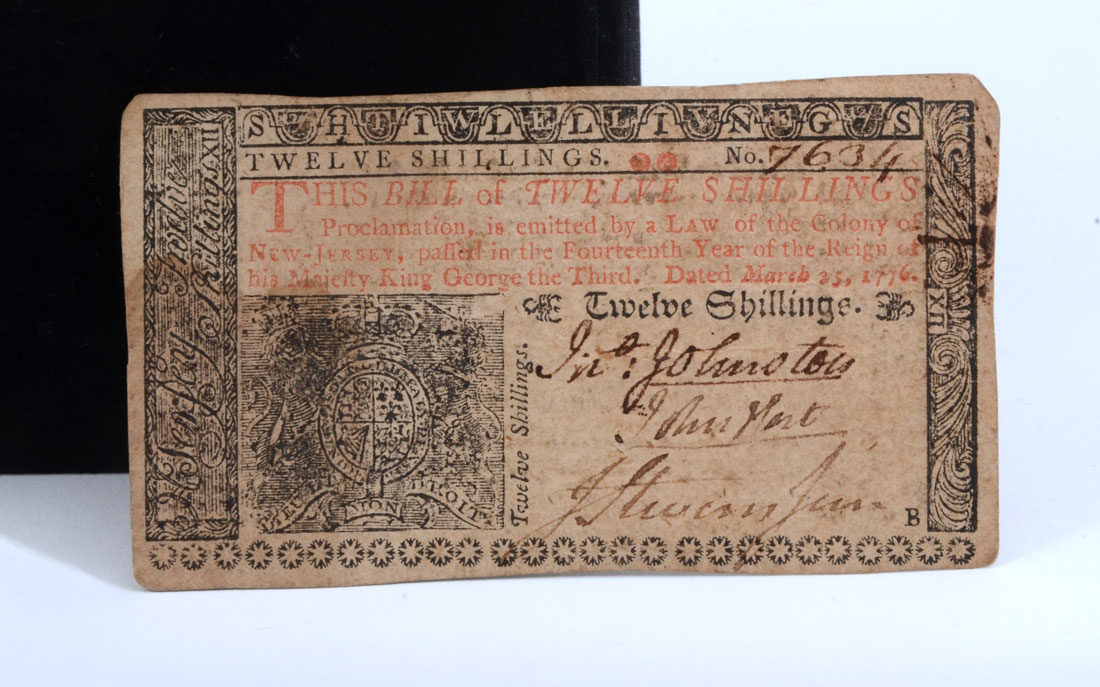 S H T I W L E L L I V N E G S
TWELVE SHILLINGS. No. 7634
THIS BILL of TWELVE SHILLINGS
Proclamation, is emitted by a LAW of the Colony of
NEW-JERSEY, paſſed in the Fourteenth Year of the Reign of
his Majeſty King George the Third. Dated March 25, 1776.
Twelve Shillings.
Jno: Johnston
John Hart
J Stevens Junr
B
Twelve Shillings.
N. Jerſey Twelve
Shillings. XII
XII
NON